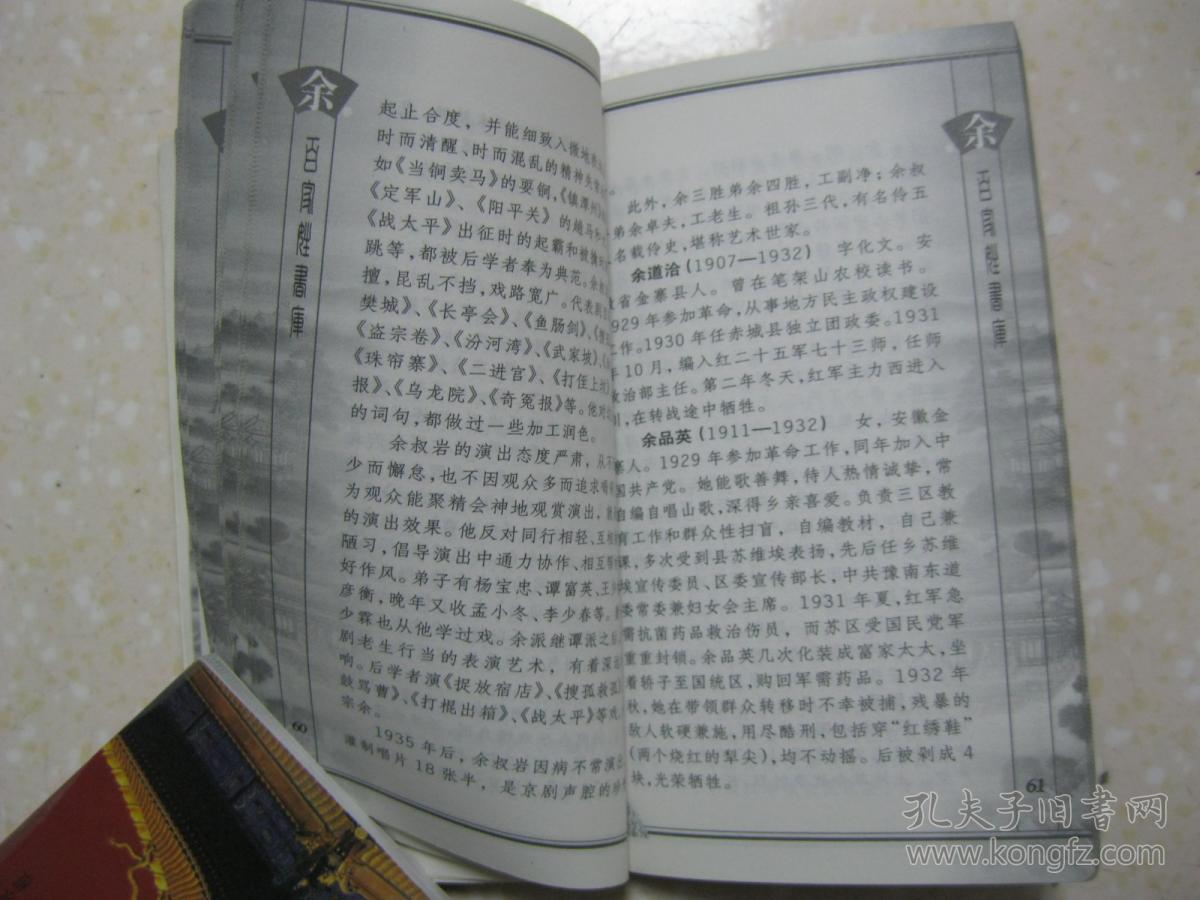 余
百家姓書庫
起止合度,并能细致入微地表
时而清醒、时而混乱的精神失常
如《当锏卖马》的耍锏,《镇潭州》
《定军山》、《阳平关》的趟马和
《战太平》出征时的起霸和被擒
跳等,都被后学者奉为典范。余叔
擅,昆乱不挡,戏路宽广。代表剧
樊城》、《长亭会》、《鱼肠剑》、
《盗宗卷》、《汾河湾》、《武家坡》、
《珠帘寨》、《二进宫》、《打侄上坟》
报》、《乌龙院》、《奇冤报》等。他对
的词句,都做过一些加工润色。
余叔岩的演出态度严肃,从不
少而懈怠,也不因观众多而追求
为观众能聚精会神地观赏演出,
的演出效果。他反对同行相轻、互相
陋习,倡导演出中通力协作、相互
好作风。弟子有杨宝忠、谭富英、王
彦衡,晚年又收孟小冬、李少春等。
少霖也从他学过戏。余派继谭派之
剧老生行当的表演艺术,有着深
响。后学者演《捉放宿店》、《搜孤救孤》
鼓骂曹》、《打棍出箱》、《战太平》等戏
宗余。
1935年后,余叔岩因病不常演出
灌制唱片18张半,是京剧声腔的
60
余
百家姓書庫
此外,余三胜弟余四胜,工副净;余叔
弟余卓夫,工老生。祖孙三代,有名伶五
名载伶史,堪称艺术世家。
余道洽(1907—1932) 字化文。安
省金寨县人。曾在笔架山农校读书。
929年参加革命,从事地方民主政权建设
工作。1930年任赤城县独立团政委。1931
年10月,编入红二十五军七十三师,任师
政治部主任。第二年冬天,红军主力西进入
川,在转战途中牺牲。
余品英(1911—1932) 女,安徽金
寨人。1929年参加革命工作,同年加入中
国共产党。她能歌善舞,待人热情诚挚,常
自编自唱山歌,深得乡亲喜爱。负责三区教
育工作和群众性扫盲,自编教材,自己兼
课,多次受到县苏维埃表扬,先后任乡苏维
埃宣传委员、区委宣传部长,中共豫南东道
委常委兼妇女会主席。1931年夏,红军急
需抗菌药品救治伤员,而苏区受国民党军
重重封锁。余品英几次化装成富家太太,坐
着轿子至国统区,购回军需药品。1932年
秋,她在带领群众转移时不幸被捕,残暴的
敌人软硬兼施,用尽酷刑,包括穿“红绣鞋”
(两个烧红的犁尖),均不动摇。后被剁成4
块,光荣牺牲。
61
孔夫子旧书网
www.kongfz.com